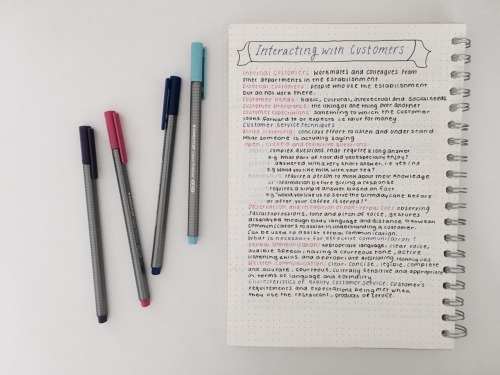 Interacting with Customers
Internal Customers: Workmates and colleagues from
other departments in the establishment
External customers: people who use the establishment
but do not work there.
Customer needs: basic, cultural, intellectual and social needs
Customer preference: the liking of one thing over another
Customer expectations: something to which the customer
looks forward to or expects i.e value for money
Customer service techniques
Active listening: concious effort to listen and understand
what someone is actually saying
Open, closed and reflective questions:
complex questions that require a long answer
e.g. What part of your did you especially enjoy?
answered with a very short answer, i.e yes/no
e.g Would you like milk with your tea?
require a person to think about their knowledge
or information before giving a response
requires a simple answer based on fact
e.g "would you like us to serve the birthday cake before
or after your coffee is served?"
Observation and of non-verbal cues: observing
facial expressions, tone and pitch of voice, gestures
displayed through body language and distance between
communicators to assist in understanding a customer.
Can be used to assist verbal communication.
What is necessary for effective communication?
Verbal communication: appropriate language, clear voice,
audible speech, having a courteous tone, active
listening skills and appropriate questioning techniques
Written communication: clear, concise, legible, complete
and accurate, courteous, culturally sensitive and appropriate
in terms of language and formality
Characteristics of quality customer service: customer's
requirements and expectations being met when
they use the restaurant, products or service.